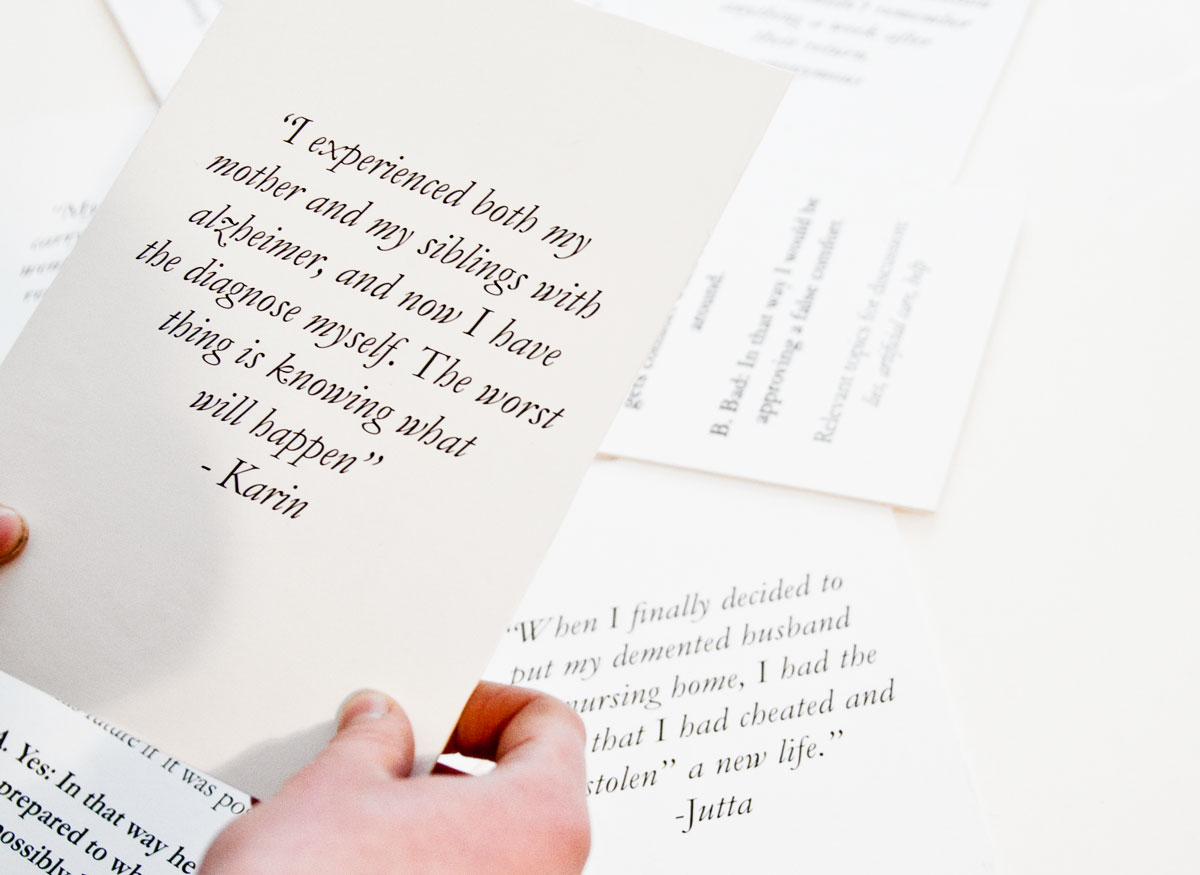 “I experienced both my
mother and my siblings with
alzheimer, and now I have
the diagnose myself. The worst
thing is knowing what
will happen”
- Karin
remember
anything a week after
their return.
around.
B. Bad: In that way I would be
approving a false comfort.
Relevant topics for discussion:
lies, artificial art, help
“When I finally decided to
put my demented husband
nursing home, I had the
that I had cheated and
stolen” a new life.”
-Jutta
future if it was
A. Yes: In that way he
prepared to
possibly